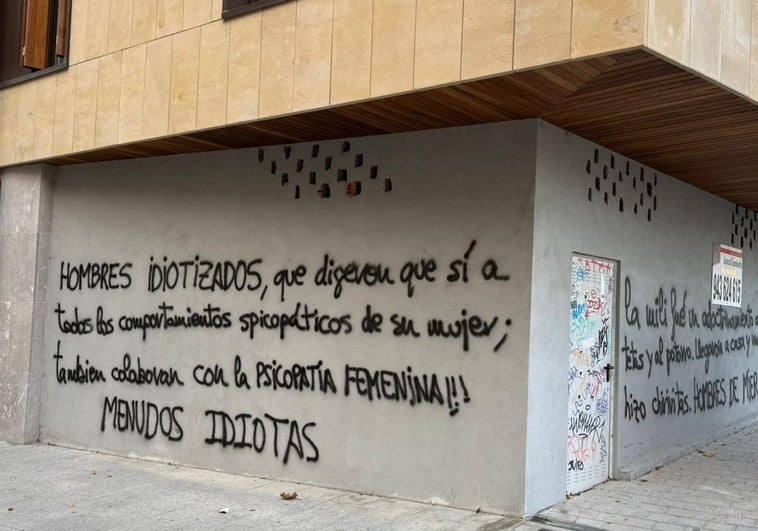 HOMBRES IDIOTIZADOS, que digeron que sí a
todos los comportamientos spicopáticos de su mujer;
tambien colaboran con la PSICOPATÍA FEMENINA!!!
MENUDOS IDIOTAS
la mili fué un adoctrinamiento a
tetas y al potorro. Llegaron a casa y
hizo chiribitas. HOMBRES DE MIER
943 624 615